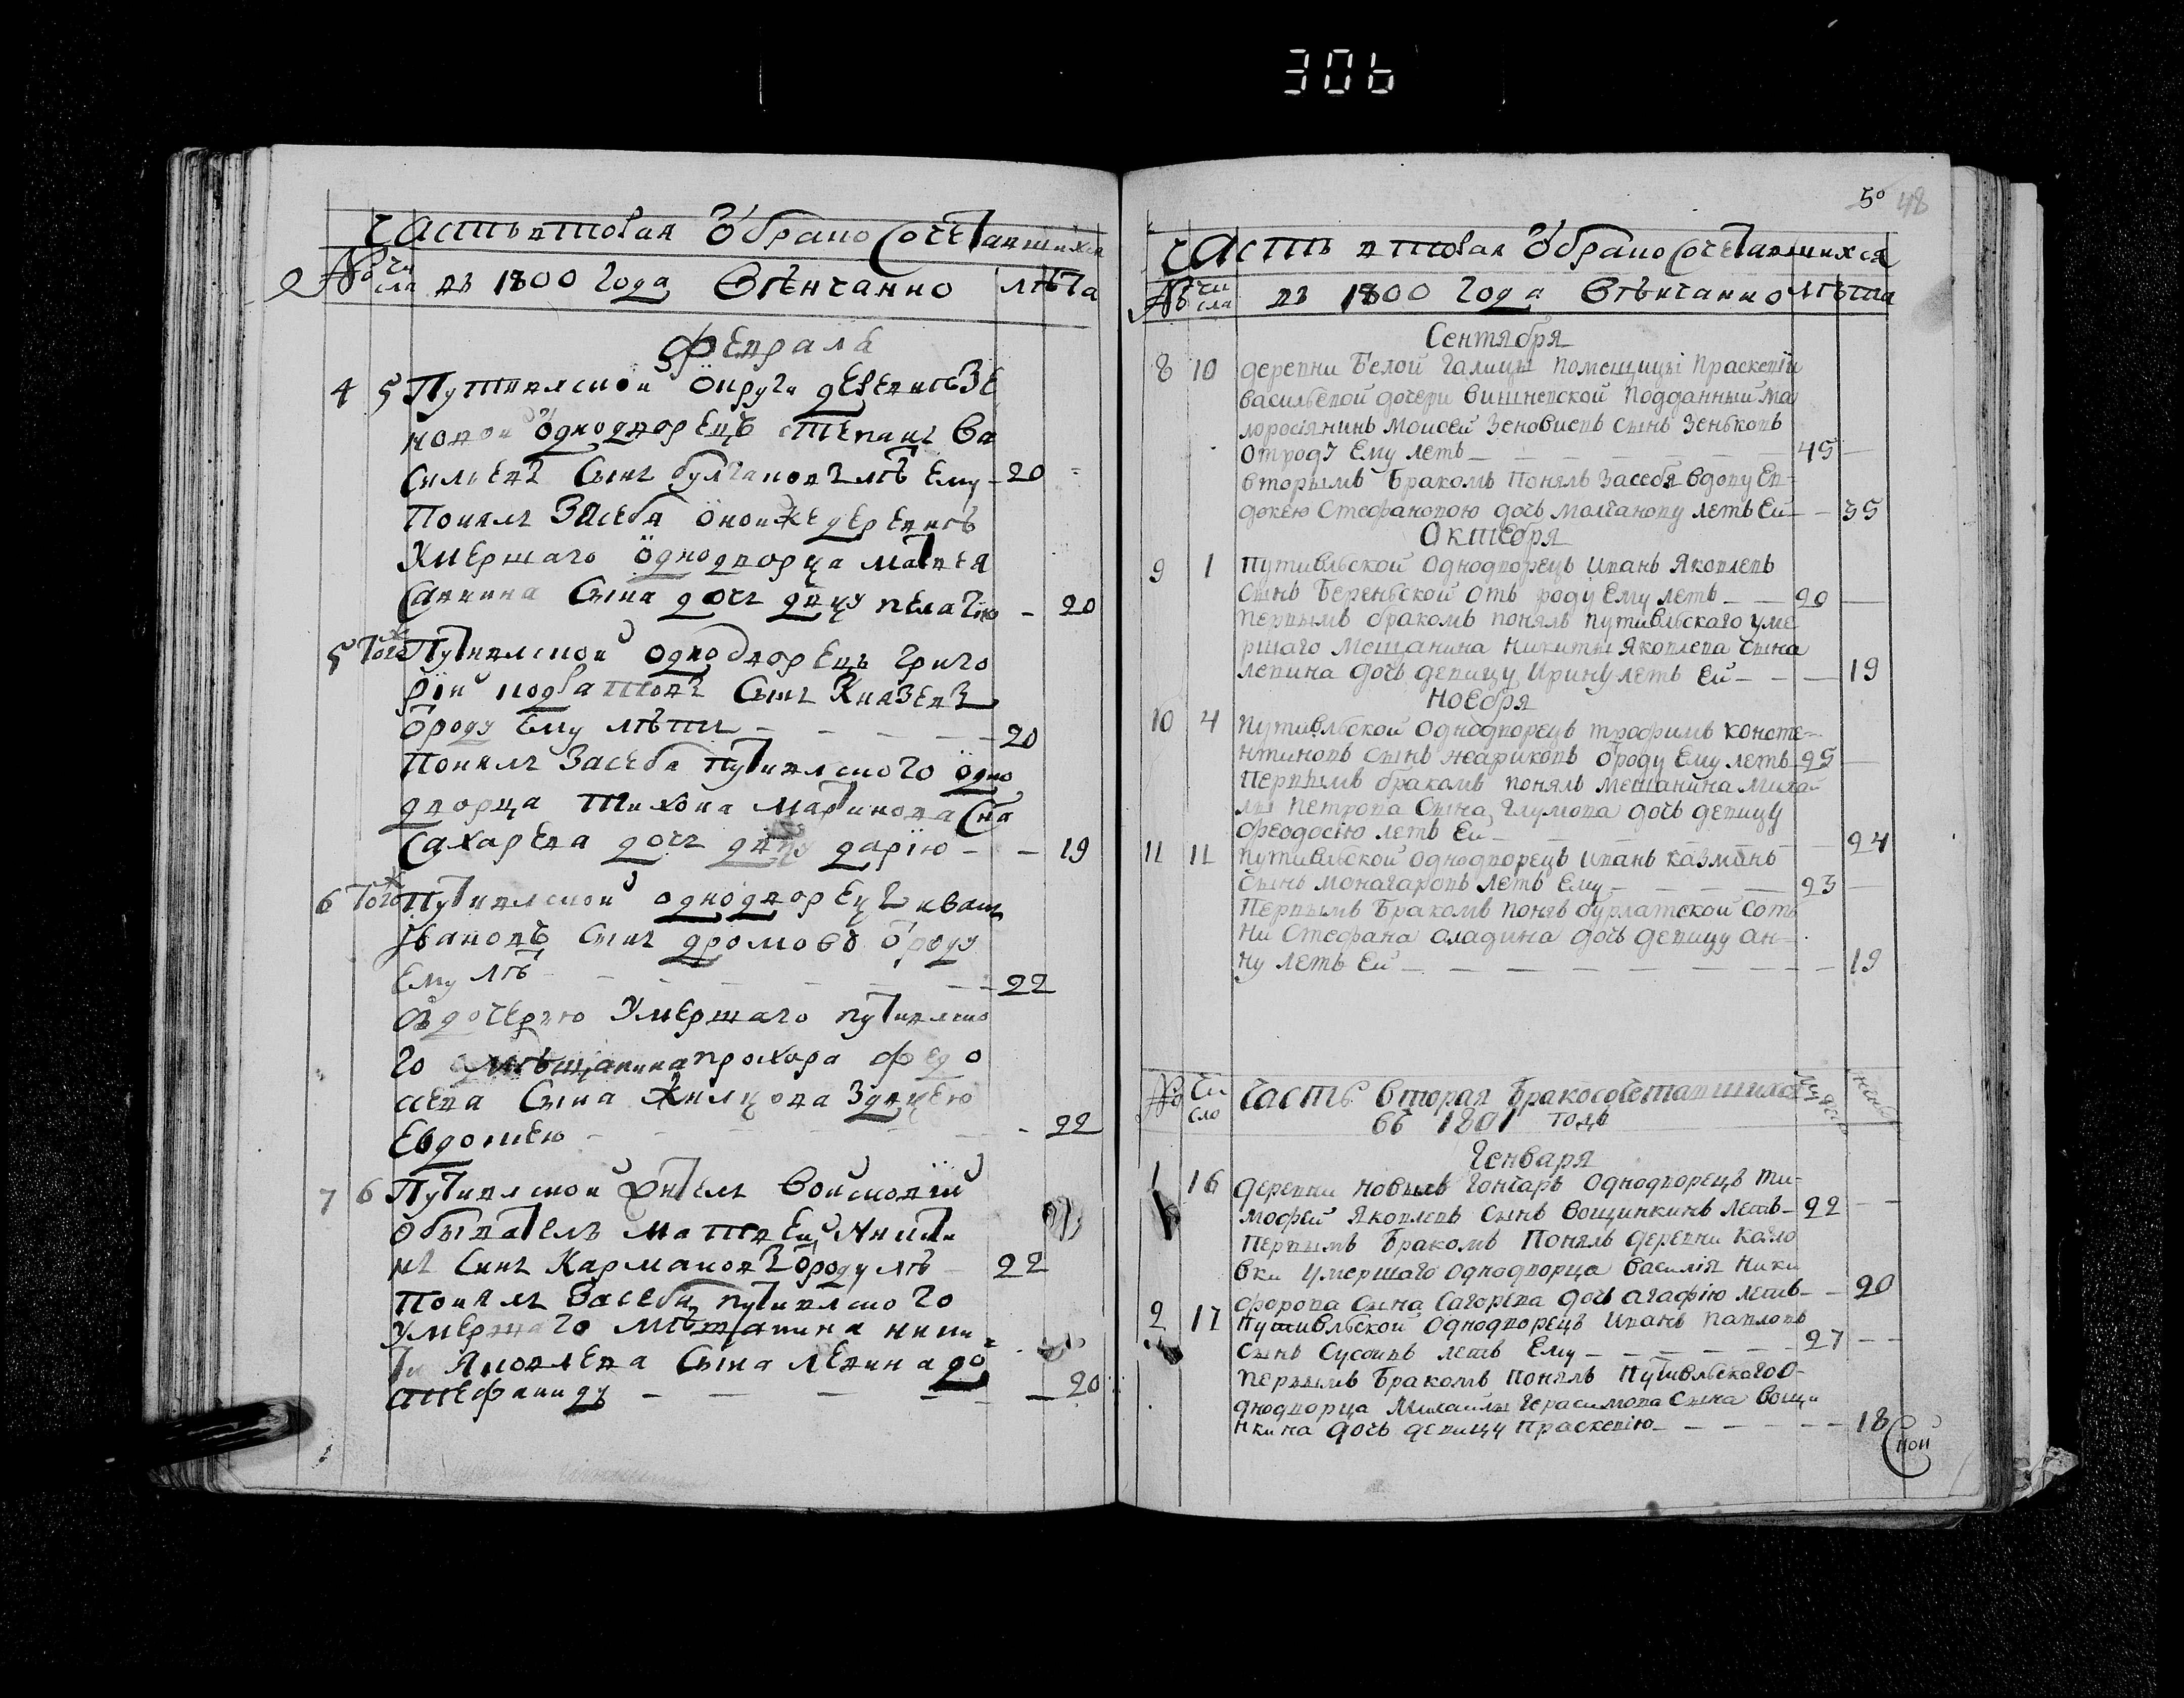 306
Часть втоЪая Ŏ бракосочетавшихся
№ чи сла въ 1800 Года Вѣнчанно лѣта
Февраля
4 5 Путивлской Округи деревнѣ Зе
новой Однодворецъ Степанъ Ва
сильевъ Сынъ булгаковъ лѣтъ Ему 20
Понялъ Засебя оной же деревнѣ
Умершаго Однодворца Матвея
Саввина Сына дочь двцу пелагию 20
5 Того ж Путивлской однодворецъ Григо
рїй Сынъ Князевъ
ŏроду Ему лѣтъ 20
Понялъ Засебя путивлского Одно
дворца Тихона Мартинова Сна
Сахарева дочь двцу дарїю 19
6 Того ж Путивлской однодворецъ иванъ
Ивановъ Сынъ дромовъ ŏроду
Ему лѣтъ 22
Здочерю Умершаго путивлско
го мѣщанина прохора федо
сѣева Сына Жилцова Здвцею
Евдокѣю 22
7 6 Путивлской житель Воисковїй
обыватель Матвей Никити
нъ Синъ Кармановъ ŏроду лѣтъ 22
Понялъ Засебя путивлского
Умершаго мѣщанина ники
ты Яковлева Сына левина до
Стефаниду 20
50 48
Часть втовая Ŏ бракосочетавшихся
№ чи сла въ 1800 Года Вѣнчанно лѣта
Сентября
8 10 деревни Белой Галицы помещицы Праскевїи
васильевой дочери вишневской подданный ма
лоросїянинъ Моисей Зеновиевъ сынъ Зеньковъ
отроду Ему леть 45
вторымъ Бракомъ Понялъ Засебя вдову Ев-
докею Стефановою дочь молчанову леть Ей 35
Октебря
9 1 Путивльской Однодворецъ Иванъ Яковлевъ
сынъ Береньской отъ роду Ему леть 20
первымъ бракомъ понялъ путивльскаго уме
ршаго мещанина Никиты Яковлева сына
левина дочь девицу Ирину леть Ей 19
Ноебря
10 4 Путивльской Однодворецъ трофимъ консте-
нтиновъ сынъ жариковъ ŏроду Ему леть 25
Первымъ бракомъ понялъ мещанина Михай-
лы петрова Сына глумова дочь девицу
феодосїю леть Ей 24
11 11 Путивльской Однодворецъ Иванъ казминъ
сынъ монагаровъ леть Ему 23
Первымъ Бракомъ понявъ бурлатской сот
ни Стефана оладина дочь девицу ан-
ну леть Ей 19
№ Чи сло Часть вторая Бракосочетавшихся
въ 1801 годъ
Генваря
1 16 деревни новыхъ Гончаръ Однодворецъ ти-
мофей Яковлевъ сынъ вощинкинъ леть 22
Первымъ Бракомъ Понялъ деревни Кало
вки умершаго Однодворца Василїя Ники
форова сына Сагорева дочь агафїю леть 20
2 17 Путивльской Однодворецъ Иванъ павловъ
сынъ Сусоивъ леть Ему 27
первымъ Бракомъ Понялъ Путивльскаго О-
днодворца Михаилы Герасимова Сына вощи
нкина дочь девицу Праскевїю 18